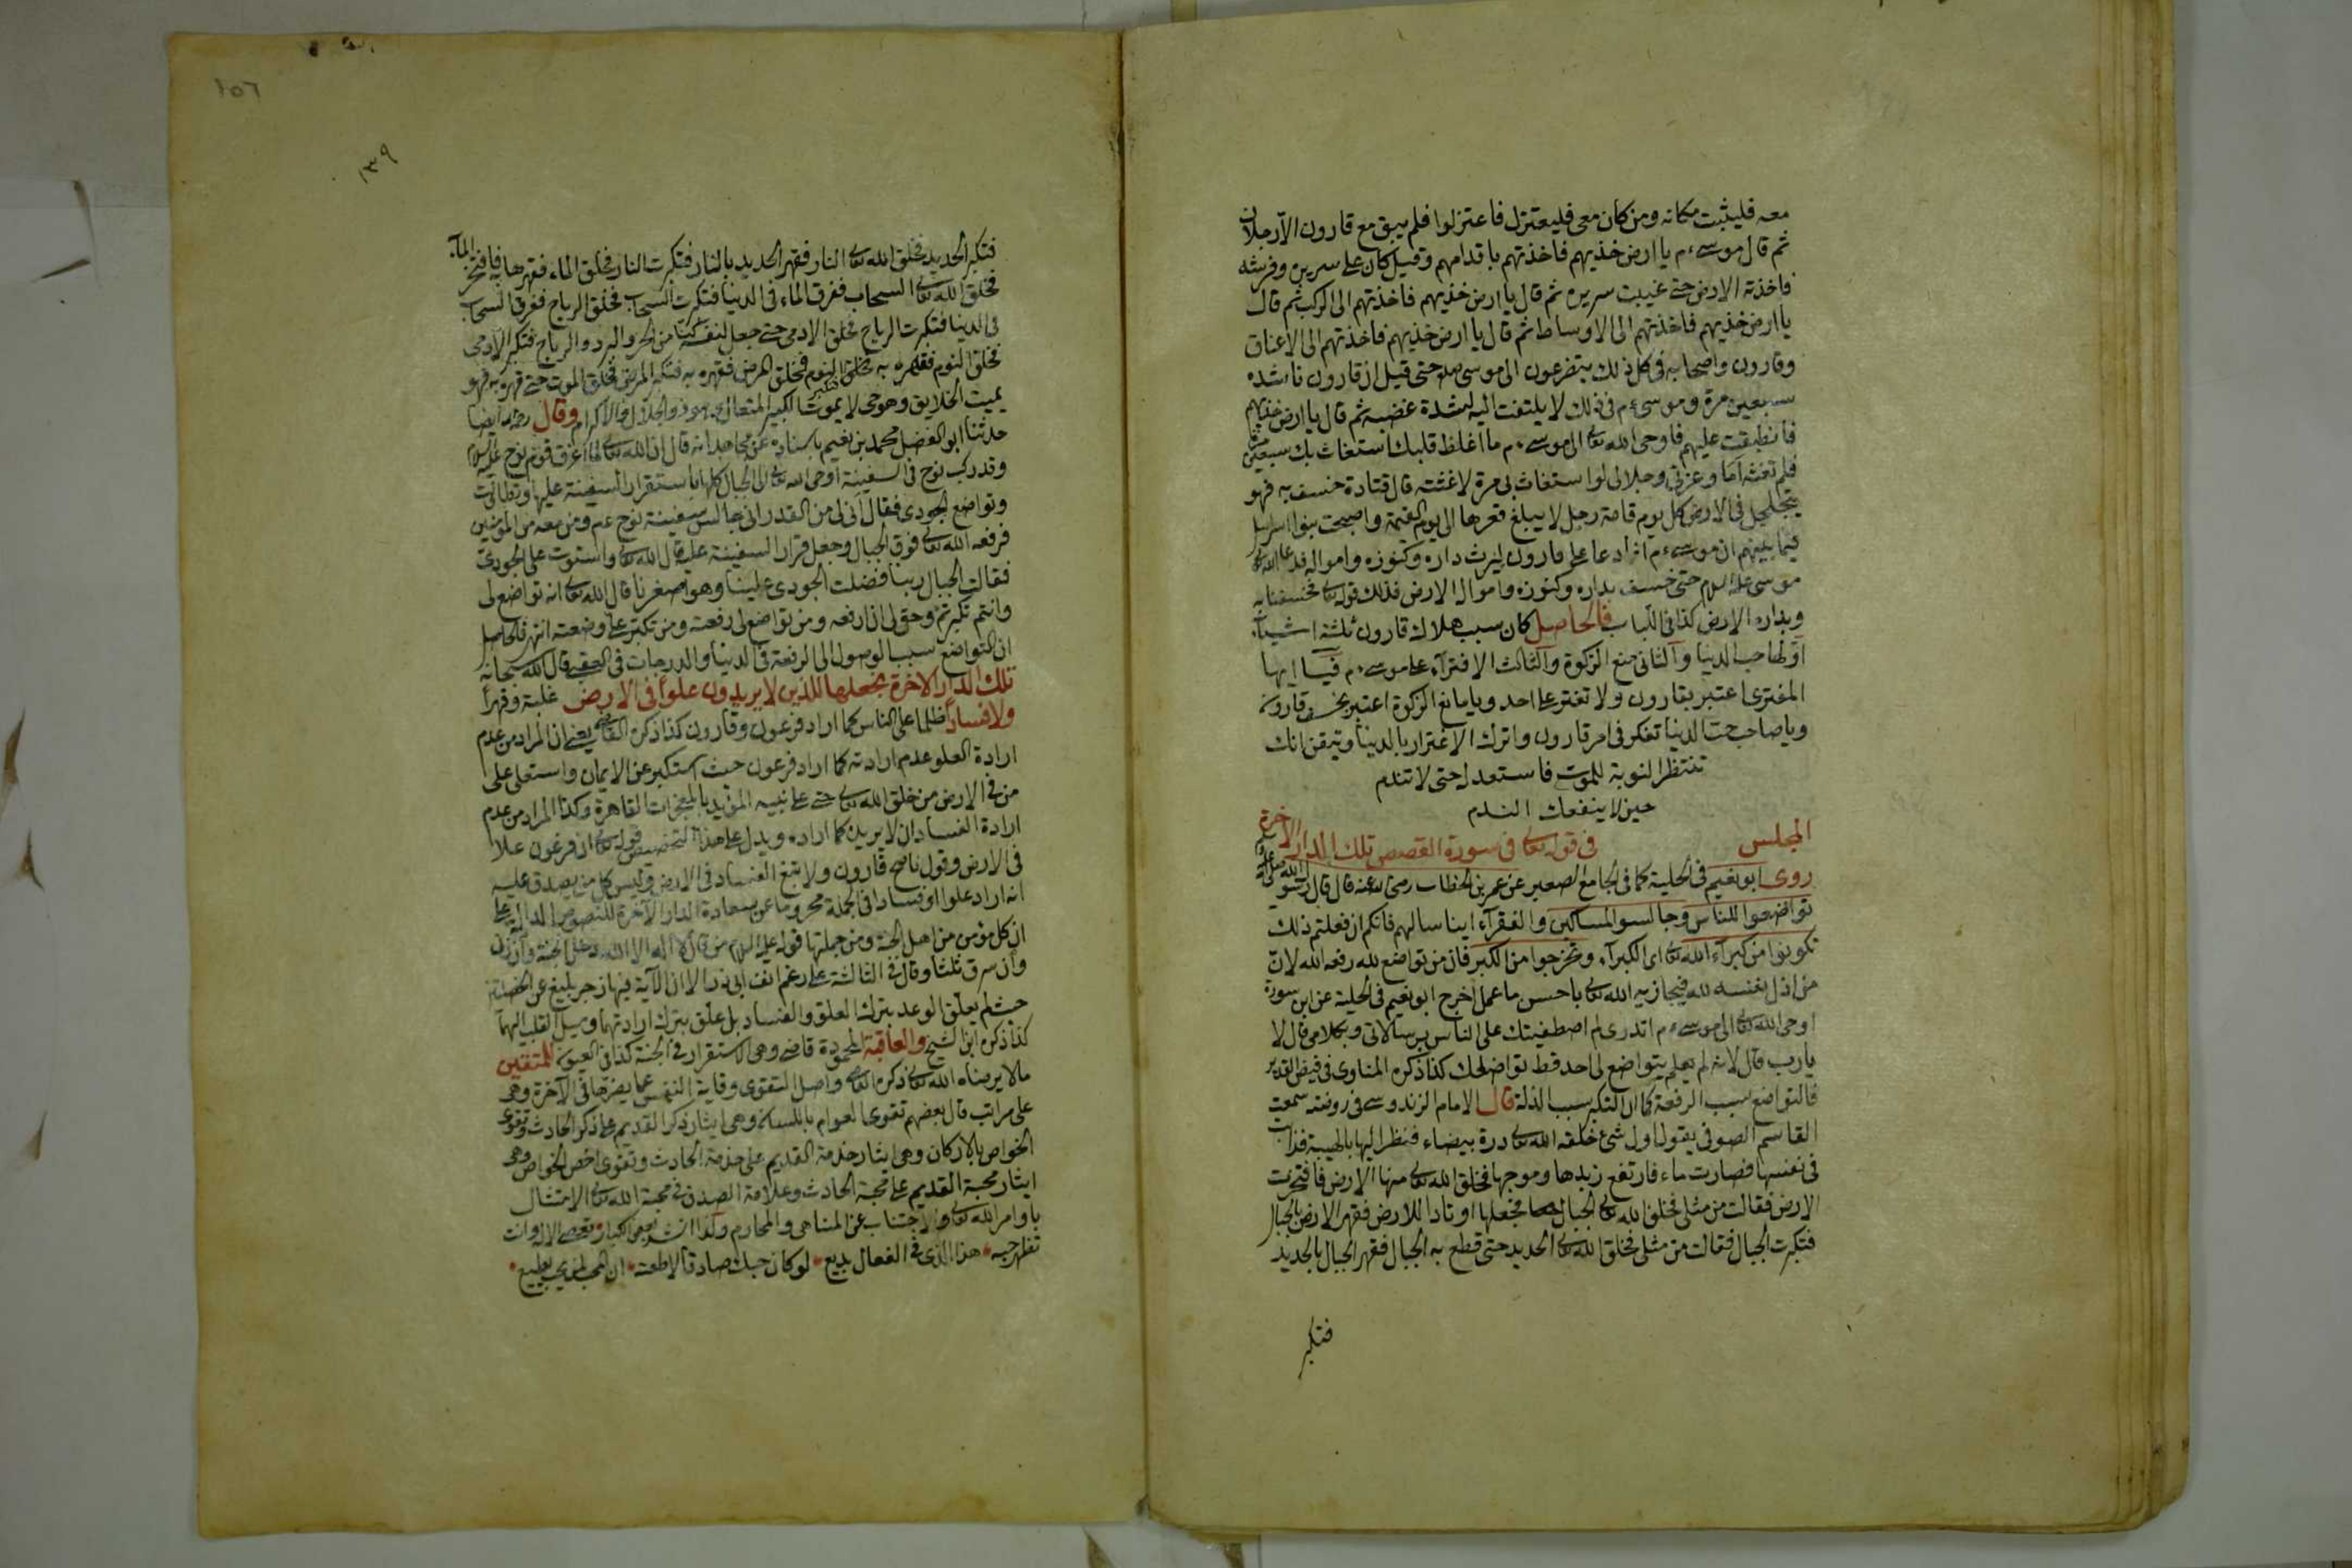 معه فليثبت مكانه ومن كان معى فليعتزل فاعتزلوا فلم يبق مع قارون الا رجلان
ثم قال موسى ء م يا ارض خذيهم فاخذتهم باقدامهم وقيل كان على سريره وفرشه
فاخذته الارض حتى غيبت سريره ثم قال يا ارض خذيهم فاخذتهم الى الركب ثم قال
يا ارض خذيهم فاخذتهم الى الاوساط ثم قال يا ارض خذيهم فاخذتهم الى الاعناق
وقارون واصحابه فى كل ذلك يتضرعون الى موسى حتى قيل ان قارون ناشده
سبعين مرة وموسى ء م فى ذلك لا يلتفت اليه لشدة غضبه ثم قال يا ارض خذيهم
فانطبقت عليهم فاوحى الله تعالى الى موسى ء م ما اغلظ قلبك استغاث بك سبعين مرة
فلم تغثه اما وعزتى وجلالى لو استغاث بى مرة لاغثته قال قتادة خسف به فهو
يتجلجل فى الارض كل يوم قامة رجل لا يبلغ قعرها الى يوم القيمة واصبحت بنوا اسرائيل
فيما بينهم ان موسى ء م انما دعا على قارون ليرث داره وكنوزه وامواله فدعا الله تعالى
موسى عليه السلام حتى خسف بداره وكنوزه وامواله الارض فذلك قوله تعالى فخسفنا به
وبداره الارض كذا فى اللباب فالحاصل كان سبب هلاك قارون ثلثة اشياء
اولها حب الدنيا والثانى منع الزكوة والثالث الافتراء على موسى ء م فيا ايها
المفترى اعتبر بقارون ولا تفتر على احد ويا مانع الزكوة اعتبر بخسف قارون
ويا صاحب حب الدنيا تفكر فى امر قارون واترك الاغترار بالدنيا وتيقن انك
تنتظر النوبة للموت فاستعد له حتى لا تندم
حين لا ينفعك الندم
المجلس فى قوله تعالى فى سورة القصص تلك الدار الاخرة
روى ابو نعيم فى الحلية كما فى الجامع الصغير عن عمر بن الخطاب رضى الله عنه قال قال رسول الله صلى الله عليه
تواضعوا للناس وجالسوا المساكين والفقراء ايناسا لهم فانكم ان فعلتم ذلك
تكونوا من كبراء الله تعالى اى الكبراء وتخرجوا من الكبر فان من تواضع لله رفعه الله لان
من اذل نفسه لله فيجازيه الله تعالى باحسن ما عمل اخرج ابو نعيم فى الحلية عن ابن سورة
اوحى الله تعالى الى موسى ء م اتدرى لم اصطفيتك على الناس برسالاتى وبكلامى قال لا
يا رب قال لانه لم يتواضع لى احد قط تواضعك كذا ذكره المناوى فى فيض القدير
فالتواضع سبب الرفعة كما ان التكبر سبب الذلة قال الامام الزندوسى فى روضته سمعت
القاسم الصوفى يقول اول شئ خلقه الله تعالى درة بيضاء فنظر اليها بالهيبة فذابت
فى نفسها فصارت ماء فارتفع زبدها وموجها فخلق الله تعالى منها الارض فافتخرت
الارض فقالت من مثلى فخلق الله تعالى الجبال فجعلها اوتادا للارض فقهر الارض بالجبال
فتكبرت الجبال فقالت من مثلى فخلق الله تعالى الحديد حتى قطع به الجبال فقهر الجبال بالحديد
فتكبر
١٥٦
١٣٩
فتكبر الحديد فخلق الله تعالى النار فقهر الحديد بالنار فتكبرت النار فخلق الماء فقهرها به فافتخر الماء
فخلق الله تعالى السحاب ففرق الماء فى الدنيا فتكبرت السحاب فخلق الرياح ففرق السحاب
فى الدنيا فتكبرت الرياح فخلق الادمى حتى جعل لنفسه كنا من الحر والبرد والرياح فتكبر الادمى
فخلق النوم فقهره به فتكبر النوم فخلق المرض فقهره به فتكبر المرض فخلق الموت حتى قهره به فهو
يميت الخلايق وهو حى لا يموت الكبير المتعال ذو الجلال والاكرام وقال رحمه ايضا
حدثنا ابو الفضل محمد بن نعيم باسناده عن مجاهد انه قال ان الله تعالى لما اغرق قوم نوح عليه السلام
وقد ركب نوح فى السفينة اوحى الله تعالى الى الجبال كلها باستقرار السفينة عليها وتطاولت
وتواضع الجودى فقال انى لى من القدر انى جالس سفينة نوح ء م ومن معه من المؤمنين
فرفعه الله تعالى فوق الجبال وجعل قرار السفينة عليه قال الله تعالى واستوت على الجودى
فقالت الجبال ربنا فضلت الجودى علينا وهو اصغرنا قال الله تعالى انه تواضع لى
وانتم تكبرتم وحق لى ان ارفعه ومن تواضع لى رفعته ومن تكبر على وضعته انتهى فالحاصل
ان التواضع سبب الوصول الى الرفعة فى الدنيا والدرجات فى العقبى قال الله سبحانه
تلك الدار الاخرة نجعلها للذين لا يريدون علوا فى الارض غلبة وقهرا
ولا فسادا ظلما على الناس كما اراد فرعون وقارون كذا ذكره القاضى يعنى ان المراد من عدم
ارادة العلو عدم ارادته كما اراد فرعون حيث استكبر عن الايمان واستعلى على
من فى الارض من خلق الله تعالى حتى على نبيه المؤيد بالمعجزات القاهرة وكذا المراد من عدم
ارادة الفساد ان لا يريده كما اراده ويدل على هذا التخصيص قوله تعالى ان فرعون علا
فى الارض وقول ناصح قارون ولا تبغ الفساد فى الارض وليس كل من يصدق عليه
انه اراد علوا او فسادا فى الجملة محروما عن سعادة الدار الآخرة للنصوص الدالة على
ان كل مؤمن من اهل الجنة ومن جملتها قوله عليه السلام من قال لا اله الا الله دخل الجنة وان زنى
وان سرق ثلثا وقال فى الثالثة على رغم انف ابى ذر الا ان الآية فيها زجر بليغ عن الخصلتين
حيث لم يعلق الوعد بترك العلو والفساد بل علق بترك ارادتهما وميل القلب اليهما
كذا ذكره ابن الشيخ والعاقبة المحمودة قاضى وهى الاستقرار فى الجنة كذا فى العيون للمتقين
ما لا يرضاه الله تعالى ذكره القاضى واصل التقوى وقاية النفس عما يضرها فى الآخرة وهى
على مراتب قال بعضهم تقوى العوام باللسان وهى ايثار ذكر القديم على ذكر الحادث وتقوى
الخواص بالاركان وهى ايثار خدمة القديم على خدمة الحادث وتقوى اخص الخواص وهى
ايثار محبة القديم على محبة الحادث وعلامة الصدق فى محبة الله تعالى الامتثال
باوامر الله تعالى والاجتناب عن المناهى والمحارم ولذا انشد بعض الكبار تعصى الاله وانت
تظهر حبه هذا لذى فى الفعال بديع لو كان حبك صادقا لاطعته ان المحب لمن يحب يطيع